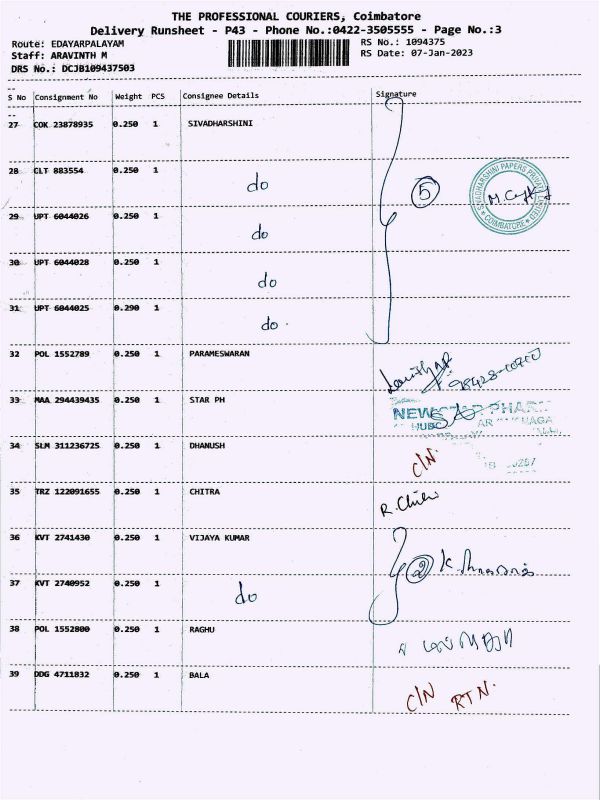 THE PROFESSIONAL COURIERS, Coimbatore
Delivery Runsheet - P43 - Phone No.:0422-3505555 - Page No.:3
Route: EDAYARPALAYAM RS No.: 1094375
Staff: ARAVINTH M RS Date: 07-Jan-2023
DRS No.: DCJB109437503
S No Consignment No Weight PCS Consignee Details Signature
27 COK 23878935 0.250 1 SIVADHARSHINI
28 CLT 883554 0.250 1 do
5
SIVADHARSHINI PAPERS PRIVATE LIMITED COIMBATORE
29 UPT 6044026 0.250 1 do
30 UPT 6044028 0.250 1 do
31 UPT 6044025 0.290 1 do
32 POL 1552789 0.250 1 PARAMESWARAN
33 MAA 294439435 0.250 1 STAR PH
NEW STAR PHAR
34 SLM 311236725 0.250 1 DHANUSH C/N
35 TRZ 122091655 0.250 1 CHITRA R. Chitra
36 KVT 2741430 0.250 1 VIJAYA KUMAR
2
37 KVT 2740952 0.250 1 do
38 POL 1552800 0.250 1 RAGHU
39 DDG 4711832 0.250 1 BALA C/N RTN.